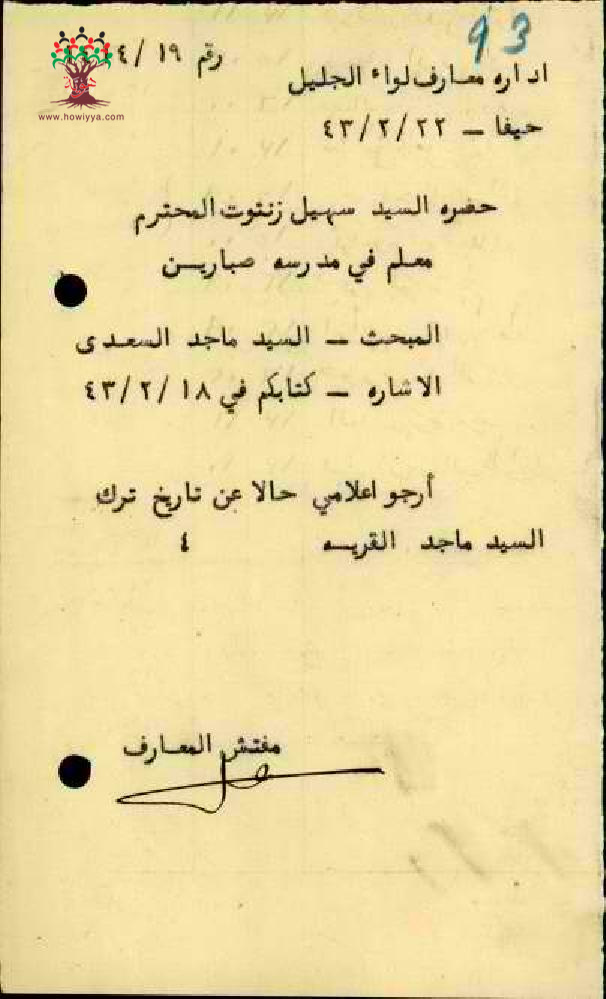 93
رقم ١٩/
اداره معارف لواء الجليل
حيفا – ٤٣/٢/٢٢
حضره السيد سهيل زنتوت المحترم
معلم في مدرسه صبارين
المبحث – السيد ماجد السعدى
الاشاره – كتابكم في ٤٣/٢/١٨
أرجو اعلامي حالا عن تاريخ ترك
السيد ماجد القريه ٤
مفتش المعارف
www.howiyya.com